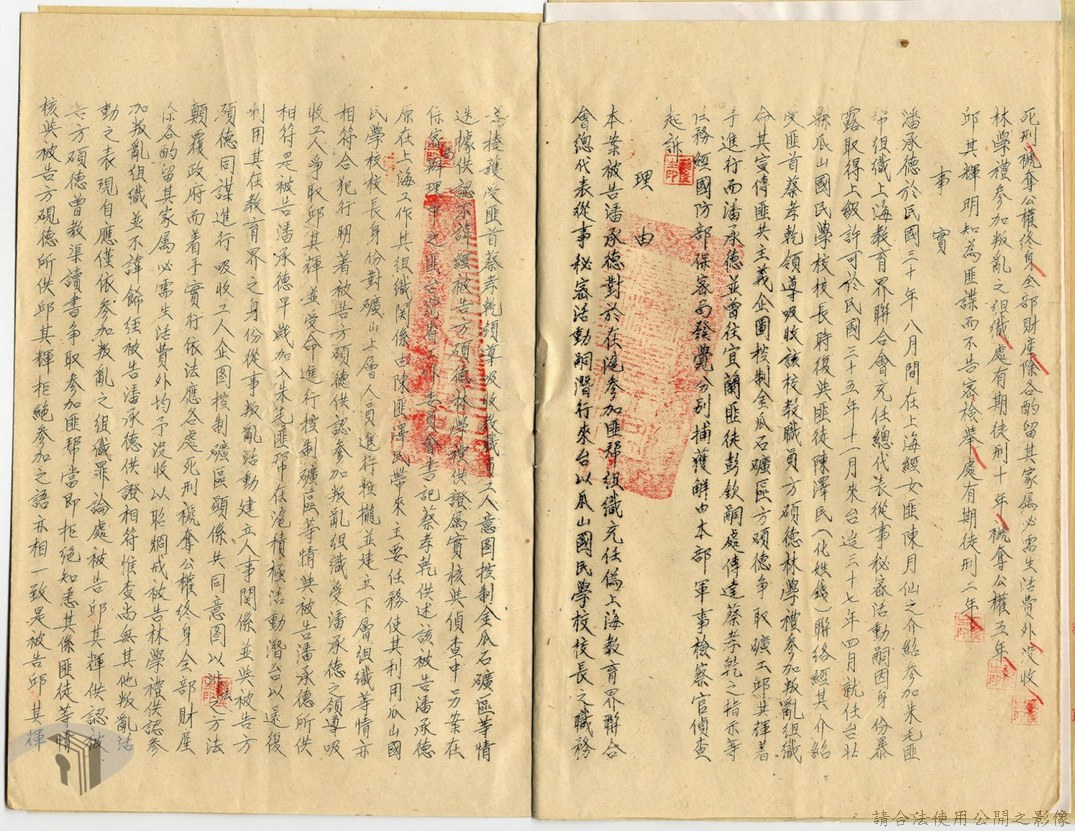 死刑褫奪公權終身全部財產除各酌留其家屬必需生活費外沒收
林學禮參加叛亂之組織處有期徒刑十年褫奪公權五年
邱其輝明知為匪諜而不告密檢舉處有期徒刑二年
事實
潘承德於民國三十年八月間在上海經女匪陳月仙之介紹參加朱毛匪
幫組織上海教育界聯合會充任總代表從事秘密活動嗣因身份暴
露取得上級許可於民國三十五年十一月來台迄三十七年四月就任台北
縣瓜山國民學校校長時復與匪徒陳澤民(化姓錢)聯絡經其介紹
受匪首蔡孝乾領導吸收該校教職員方碩德林學禮參加叛亂組織
命其宣傳匪共主義企圖控制金瓜石礦區方碩德爭取礦工邱其輝著
手進行而潘承德並曾往宜蘭匪徒彭欽嗣處傳達蔡孝乾之指示等
任務經國防部保密局發覺分別捕獲解由本部軍事檢察官偵查
起訴
理由
本案被告潘承德對於在滬參加匪幫組織充任偽上海教育界聯合
會總代表從事秘密活動嗣潛行來台以瓜山國民學校校長之職務
為掩護受匪首蔡孝乾領導吸收教職員工人意圖控制金瓜石礦區等情
迭據供認不諱經被告方碩德林學禮供證屬實核與偵查中另案在
保密局辦理中之匪台灣省工作委員會書記蔡孝乾供述該被告潘承德
原在上海工作其組織關係由陳匪澤民帶來主要任務使其利用瓜山國
民學校校長身份對礦山上層人員進行拉攏並建立下層組織等情亦
相符合犯行明著被告方碩德供認參加叛亂組織受潘承德之領導吸
收工人爭取邱其輝並受命進行控制礦區等情與被告潘承德所供
相符是被告潘承德早歲加入朱毛匪幫在滬積極活動潛台以還復
利用其在教育界之身份從事叛亂活動建立人事關係並與被告方
碩德同謀進行吸收工人企圖控制礦區顯係共同意圖以非法之方法
顛覆政府而着手實行依法應各處死刑褫奪公權終身全部財產
除各酌留其家屬必需生活費外均予沒收以昭烱戒被告林學禮供認參
加叛亂組織並不諱飾經被告潘承德供證相符惟查尚無其他叛亂活
動之表現自應僅依參加叛亂之組織罪論處被告邱其輝供認被
告方碩德曾教渠讀書爭取參加匪幫當即拒絕知悉其係匪徒等情
核與被告方碩德所供邱其輝拒絕參加之語亦相一致是被告邱其輝
請合法使用公開之影像